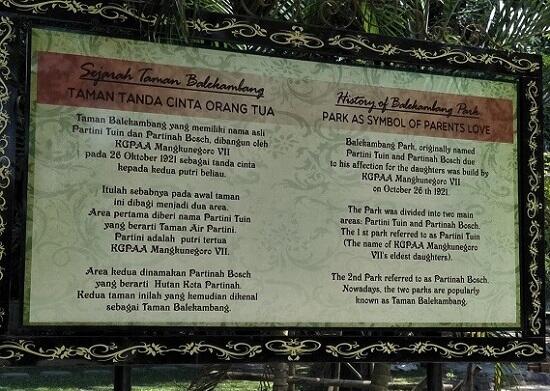 Sejarah Taman Balekambang
TAMAN TANDA CINTA ORANG TUA
Taman Balekambang yang memiliki nama asli
Partini Tuin dan Partinah Bosch, dibangun oleh
KGPAA Mangkunegoro VII
pada 26 Oktober 1921 sebagai tanda cinta
kepada kedua putri beliau.
Itulah sebabnya pada awal taman
ini dibagi menjadi dua area.
Area pertama diberi nama Partini Tuin
yang berarti Taman Air Partini.
Partini adalah putri tertua
KGPAA Mangkunegoro VII.
Area kedua dinamakan Partinah Bosch
yang berarti Hutan Kota Partinah.
Kedua taman inilah yang kemudian dikenal
sebagai Taman Balekambang.
History of Balekambang Park
PARK AS SYMBOL OF PARENTS LOVE
Balekambang Park, originally named
Partini Tuin and Partinah Bosch due
to his affection for the daughters was build by
KGPAA Mangkunegoro VII
on October 26 th 1921.
The Park was divided into two main
areas: Partini Tuin and Partinah Bosch.
The 1 st park referred to as Partini Tuin
(The name of KGPAA Mangkunegoro
VII's eldest daughters).
The 2nd Park referred to as Partinah Bosch.
Nowadays, the two parks are popularly
known as Taman Balekambang.